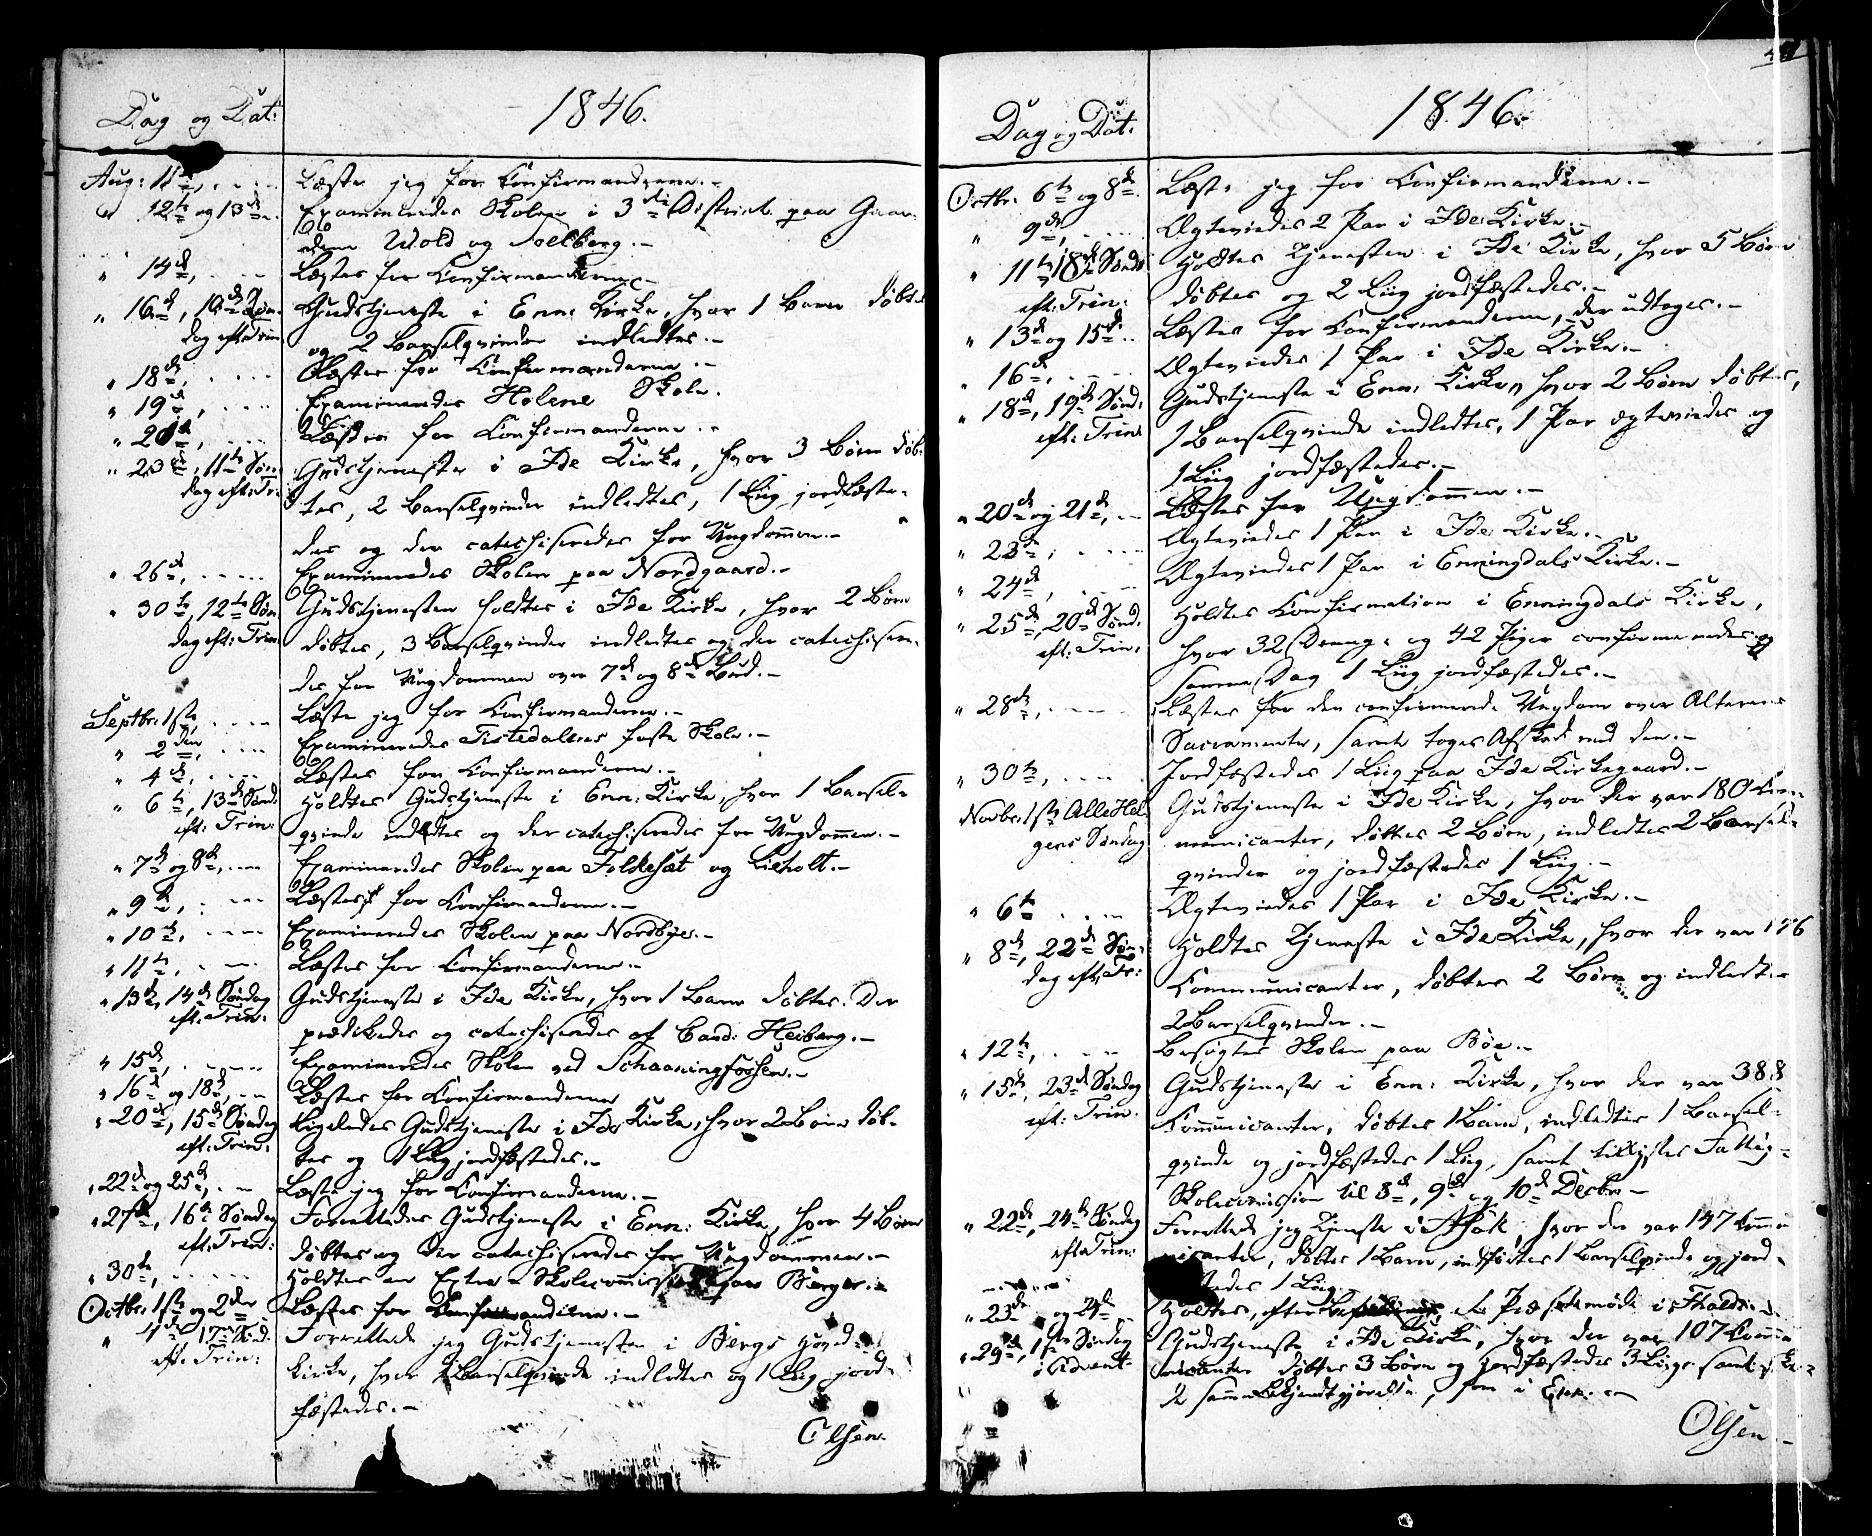 Dag og Dat:
1846.
Aug: 11te, - - - Læste jeg for Confirmanderne.-
" 12te og 13de. Examineredes Skolen i 3die District paa Gaar-
dene Wold og Solberg.-
" 14de, - - - Læstes for Confirmanderne.-
" 16de, 10de Søn- Gudstjeneste i Enn: Kirke, hvor 1 Barn døbtes
dag eft: Trin: og 2 Barselqvinder indledtes.-
" 18de, - - - Læstes for Confirmanderne.-
" 19de, - - - Examineredes Holene Skole.
" 20de, - - - Læstes for Confirmanderne.-
" 23de, 11te Søn- Gudstjeneste i Ide Kirke, hvor 3 Børn døb-
dag eft: Tr: tes, 2 Barselqvinder indledtes, 1 Liig jordfæste-
des og der catechiseredes for Ungdommen.-
" 26de, - - - Examineredes Skolen paa Nordgaard.-
" 30te, 12te Søn- Gudstjenesten holdtes i Ide Kirke, hvor 2 Børn
dag eft: Trin: døbtes, 3 Barselqvinder indledtes og der catechisere-
des for Ungdommen over 7de og 8de Bud.-
Septbr: 1ste, - - - Læste jeg for Confirmanderne.-
" 2den, - - - Examineredes Tistedalens faste Skole.-
" 4de, - - - Læstes for Confirmanderne.-
" 6te, 13de Sønd: Holdtes Gudstjeneste i Enn: Kirke, hvor 1 Barsel-
eft: Trin: qvinde indledtes og der catechiseredes for Ungdommen.-
" 7de og 8de, - - Examineredes Skolen paa Folkesæt og Lieholt.-
" 9de, - - - Læstes for Confirmanderne.-
" 10de, - - - Examineredes Skolen paa Nordbye.-
" 11te, - - - Læstes for Confirmanderne.-
" 13de, 14de Søndag Gudstjeneste i Ide Kirke, hvor 1 Barn døbtes. Der
eft: Trin: prædikedes og catechiseredes af Cand: Heiberg.-
" 15de, - - - Examineredes Skolen ved Schaaningfossen.-
" 16de og 18de, - - Læstes for Confirmanderne
" 20de, 15de Søndag Ligeledes Gudstjeneste i Ide Kirke, hvor 2 Børn døb-
eft: Trin: tes og 1 Liig jordfæstedes.-
" 22de og 25de, - - Læste jeg for Confirmanderne.-
" 27de, 16de Søndag Forrettedes Gudstjeneste i Enn: Kirke, hvor 4 Børn
eft: Trin: døbtes og der catechiseredes for Ungdommen.-
" 30te, - - - Holdtes en Extra-Skolecommission paa Berger.-
Octbr: 1ste og 2den Læstes for Confirmanderne.-
" 4de, 17de Sønd: Forrettede jeg Gudstjenesten i Bergs Hoved-
eft: Trin: kirke, hvor 1 Barselqvinde indledtes og 1 Liig jord-
fæstedes.-
Olsen.
Dag og Dat:
1846.
Octbr: 6te og 8de. Læste jeg for Confirmanderne.-
" 9de, - - - Ægteviedes 2 Par i Ide Kirke.-
" 11te, 18de Sønd: Holdtes Tjenesten i Ide Kirke, hvor 5 Børn
eft: Trin: døbtes og 2 Liig jordfæstedes.-
" 13de og 15de - - Læstes for Confirmanderne, der udtoges.-
" 16de, - - - Ægteviedes 1 Par i Ide Kirke.-
" 18de, 19de Sønd: Gudstjeneste i Enn: Kirke, hvor 2 Børn døbtes,
eft: Trin: 1 Barselqvinde indledtes, 1 Par ægteviedes og
1 Liig jordfæstedes.-
" 20de og 21de, - - Læstes for Ungdommen.-
" 23de, - - - Ægteviedes 1 Par i Ide Kirke.-
" 24de, - - - Ægteviedes 1 Par i Enningdals Kirke.-
" 25de, 20de Sønd: Holdtes Confirmation i Enningdals Kirke,
eft: Trin: hvor 32 Drenge og 42 Piger confirmeredes og
samme Dag 1 Liig jordfæstedes.-
" 28de, - - - Læstes for den confirmerede Ungdom over Alterens
Sacramente, samt toges Afsked med den.-
" 30te, - - - Jordfæstedes 1 Liig paa Ide Kirkegaard.-
Novbr: 1ste Alle Hel- Gudstjeneste i Ide Kirke, hvor der var 180 Com-
gens Søndag municanter, døbtes 2 Børn, indledtes 2 Barsel-
qvinder og jordfæstedes 1 Liig.-
" 6te - - - Ægteviedes 1 Par i Ide Kirke.-
" 8de, 22de Søn- Holdtes Tjeneste i Ide Kirke, hvor der var 196
dag eft: Tr: Communicanter, døbtes 2 Børn og indledtes
2 Barselqvinder.-
" 12te, - - - Besøgtes Skolen paa Bøe.-
" 15de, 23de Søndag Gudstjeneste i Enn: Kirke, hvor der var 388
eft: Trin: Communicanter, døbtes 1 Barn, indledtes 1 Barsel-
qvinde og jordfæstedes 1 Liig, samt tillystes Fattig-
Skolecomission til 8de, 9de og 10de Decbr.-
" 22de, 24de Søndag Forrettede jeg Tjeneste i Asak, hvor der var 147 Commu-
eft: Trin: nicanter, døbtes 1 Barn, indledtes 1 Barselqvinde og jord-
stedes 1 Liig.
" 23de og 24de Holdtes, et Præstemøde i Fhald.-
" 29de, 1ste Søndag Gudstjeneste i Ide Kirke, hvor der var 107 Commu-
i Advent: nicanter døbtes 3 Børn og jordfæstedes 3 Liig samt ske-
de samme Bekjendtgjørelse, som i Enn.-
Olsen